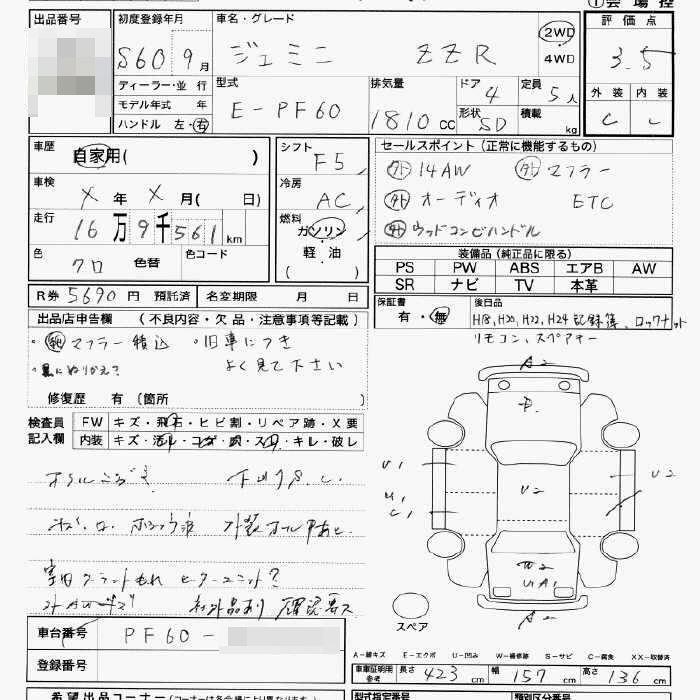 ①会場控
出品番号 初度登録年月 車名・グレード 評価点
S60年 9月 ジェミニ ZZR 2WD 4WD 3.5
ディーラー・並行 型式 排気量 ドア 定員 外装 内装
モデル年式 年 E-PF60 1810 CC 4 5人 C C
ハンドル 左・右 形状 SD 積載 kg
車歴 自家用( ) シフト F5 セールスポイント(正常に機能するもの)
車検 X年 X月( 日) 冷房 AC 外 14AW 外 マフラー
外 オーディオ ETC
走行 16万9千561km 燃料 ガソリン 軽・油 ( ) 外 ウッドコンビハンドル
色 クロ 色替 色コード 装備品(純正品に限る)
PS PW ABS エアB AW
SR ナビ TV 本革
R券 5690円 預託済 名変期限 月 日 保証書 有・無 後日品
H18,H20,H22,H24記録簿、ロックナット
リモコン、スペアキー
出品店申告欄 (不良内容・欠品・注意事項等記載)
・純マフラー積込 ・旧車につき
・黒にぬりかえ? よく見て下さい
修復歴 有 (箇所 )
検査員記入欄 FW キズ・飛石・ヒビ割・リペア跡・X要
内装 キズ・汚れ・コゲ・穴・スレ・キレ・破レ
ヒーターユニット?
社外品あり 確認要ス
車台番号 PF60-
登録番号
A2
U1 U2 U2
U1
C1
W2
U1 A1
A2
スペア
A−線キズ E−エクボ U−凹み W−補修跡 S−サビ C−腐食 XX−取替済
車庫証明用参考 長さ 423 cm 幅 157 cm 高さ 136 cm
希望出品コーナー(コーナーは各会場により異なります) 型式指定番号 類別区分番号